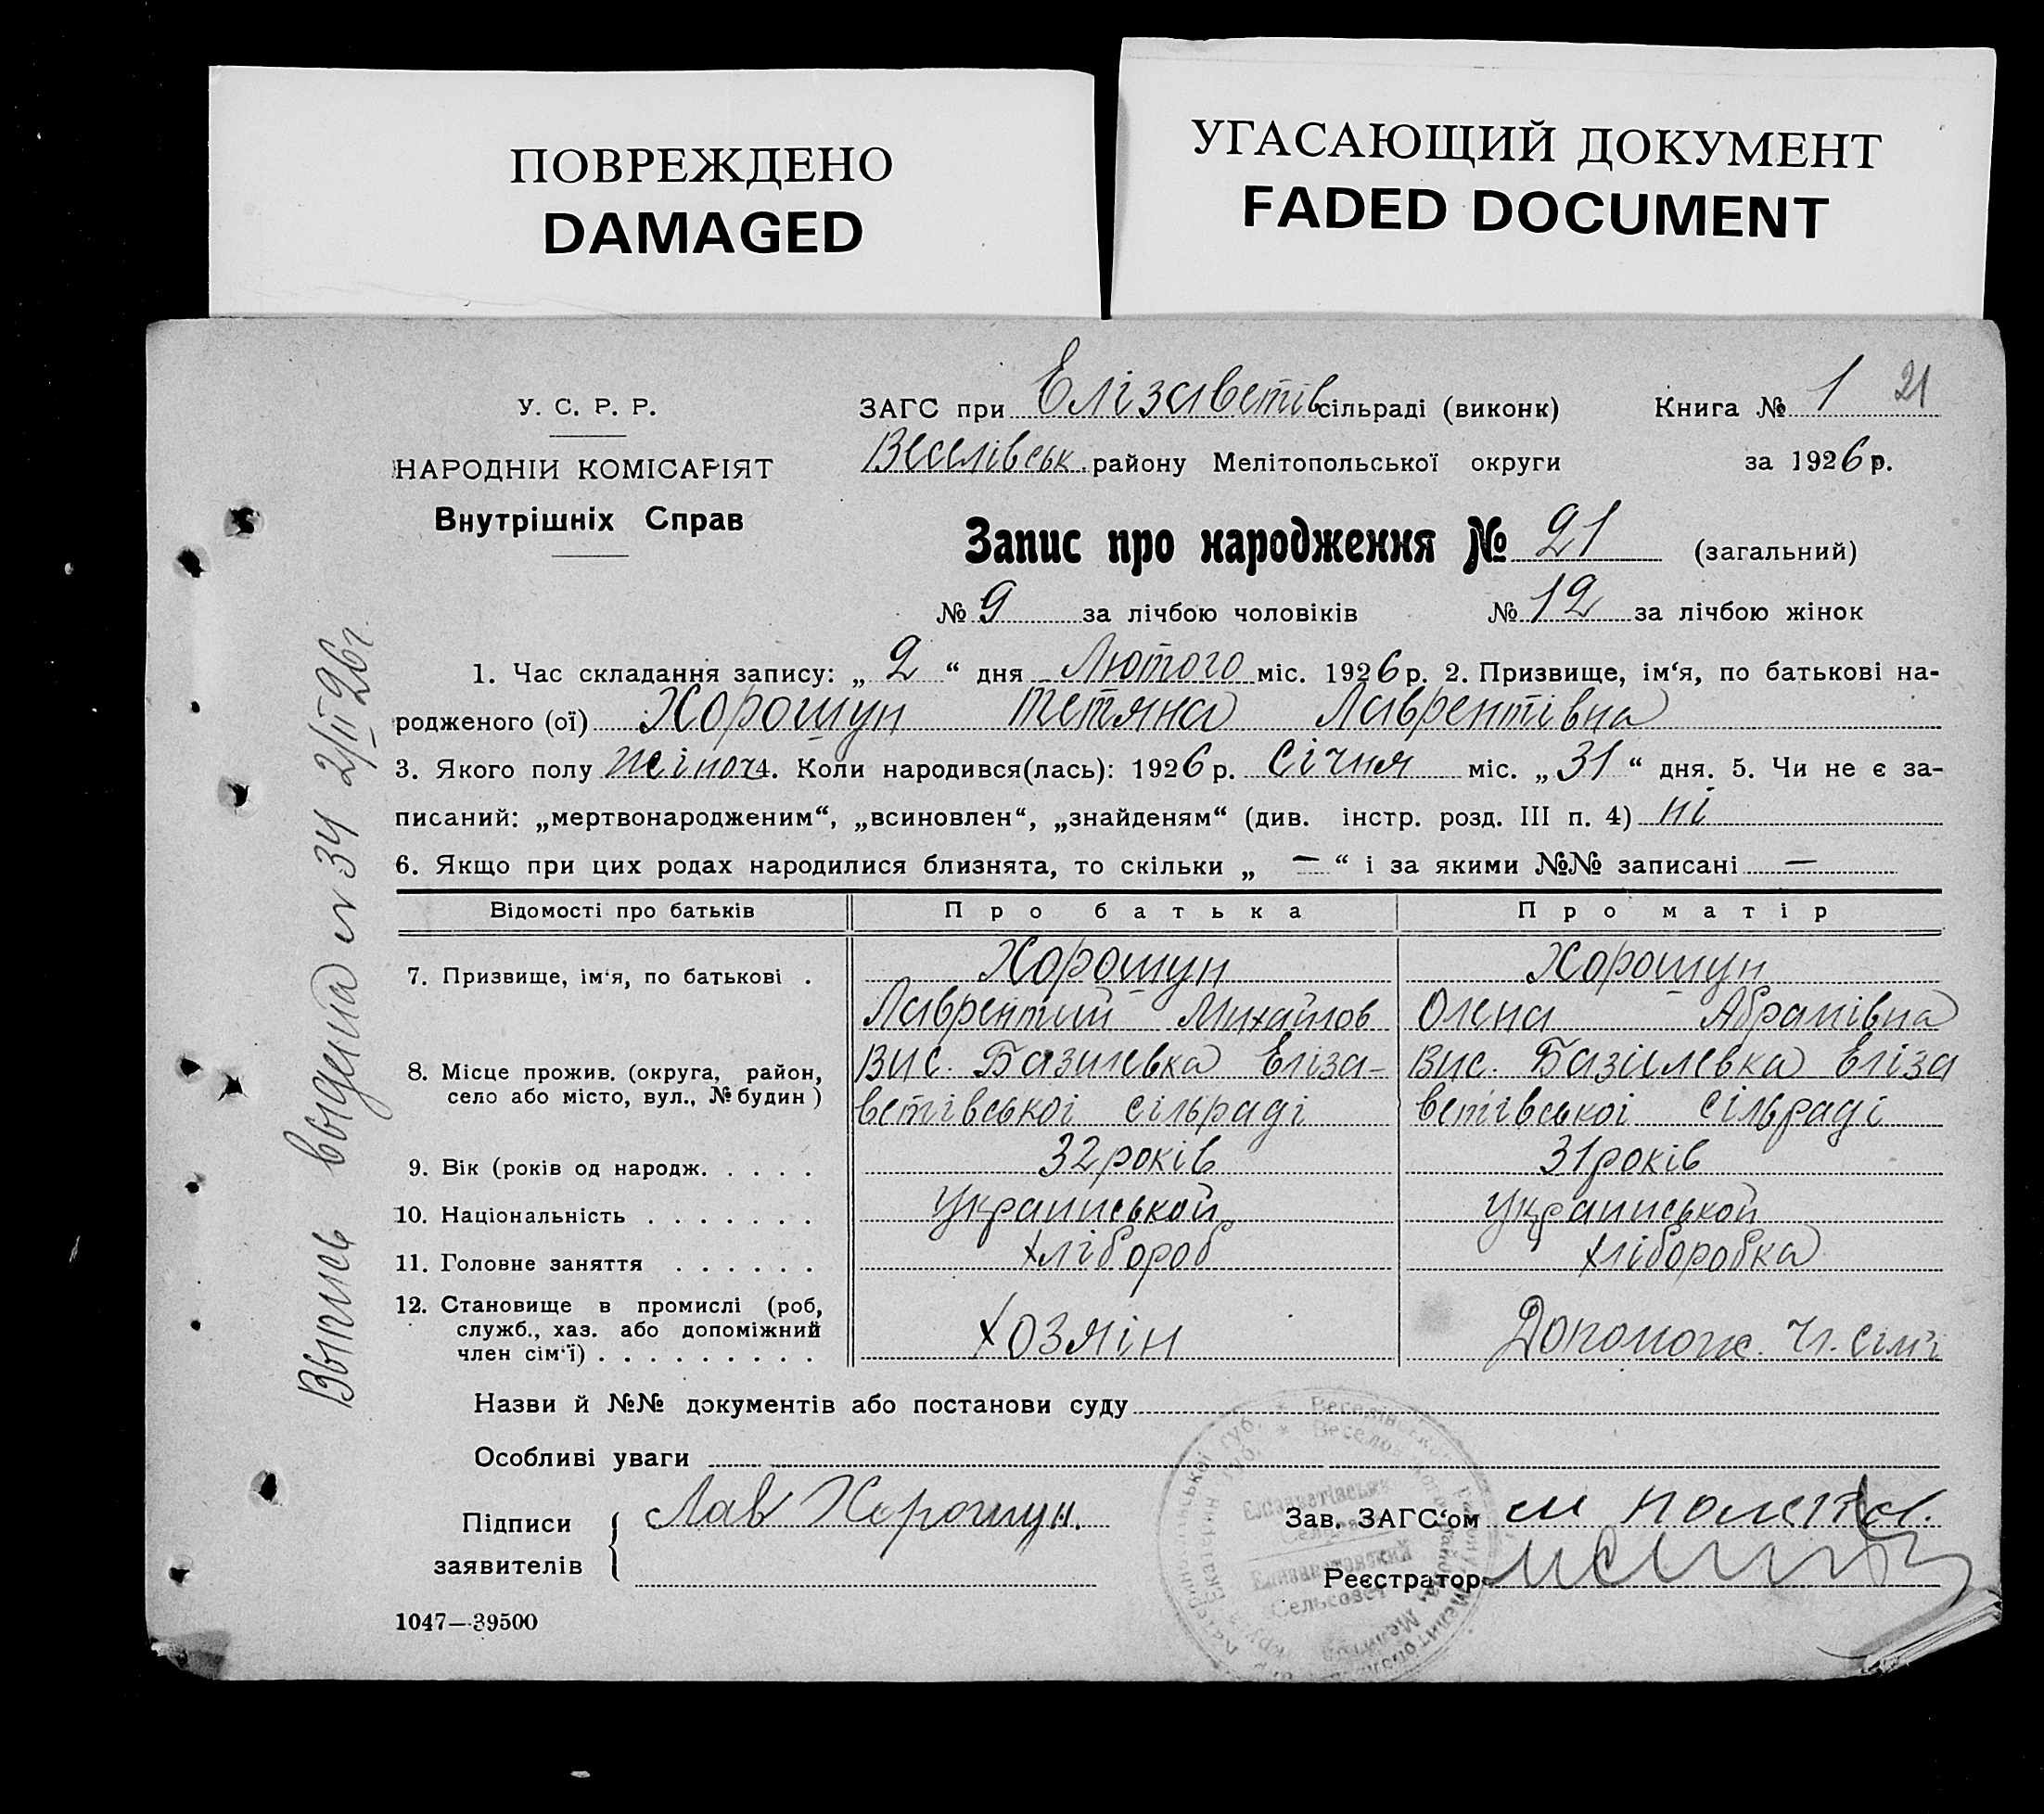 ПОВРЕЖДЕНО
DAMAGED
УГАСАЮЩИЙ ДОКУМЕНТ
FADED DOCUMENT
У. С. Р. Р.
НАРОДНІЙ КОМІСАРІЯТ
Внутрішніх Справ
ЗАГС при Елізаветів сільраді (виконк) Книга № 1 21
Веселівськ. району Мелітопольської округи за 1926 р.
Запис про народження № 21 (загальний)
№ 9 за лічбою чоловіків № 12 за лічбою жінок
1. Час складання запису: „ 2 “ дня Лютого міс. 1926 р. 2. Призвище, ім‘я, по батькові на-
родженого (ої) Хорошун Тетяна Лаврентівна
3. Якого полу жіноч 4. Коли народився(лась): 1926 р. Січня міс. „ 31 “ дня. 5. Чи не є за-
писаний: „мертвонародженим“, „всиновлен“, „знайденям“ (див. інстр. розд. III п. 4) ні
6. Якщо при цих родах народилися близнята, то скільки „ — “ і за якими №№ записані —
Відомості про батьків Про батька Про матір
7. Призвище, ім‘я, по батькові . Хорошун Хорошун
Лаврентий Михайлов Олена Абрамівна
8. Місце прожив. (округа, район, Вис. Базилевка Еліза- Вис. Базілевка Еліза
село або місто, вул., № будин) ветівськоі сільраді ветівськоі сільраді
9. Вік (років од народж. . . . . 32 років 31 років
10. Національність . . . . . . . Украинськой Украинськой
11. Головне заняття . . . . . . Хлібороб Хліборобка
12. Становище в промислі (роб,
служб., хаз. або допоміжний Хозяін Допомож. чл. сім'ї
член сім‘ї) . . . . . . . . .
Назви й №№ документів або постанови суду
Особливі уваги
Підписи
заявителів
Лав Хорошун.
Зав. ЗАГС‘ом
Реєстратор
1047—39500
Выпись выдена № 34 2/II 26 г.
Єлізаветівськ
Елизаветовский
Сельсовет